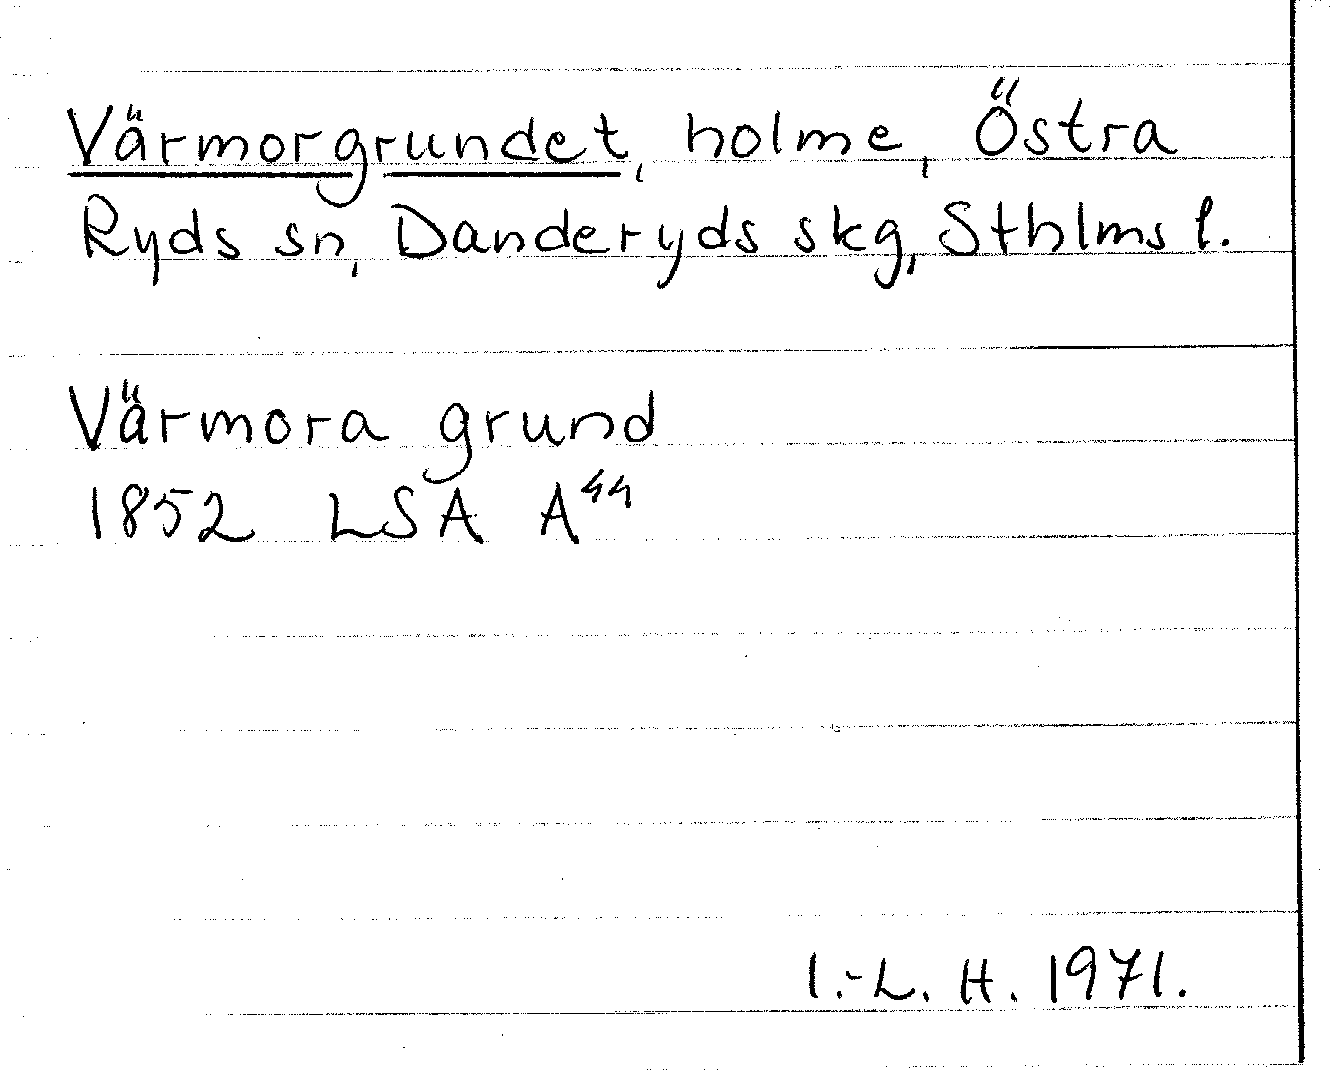 Värmorgrundet, holme, Östra
Ryds sn, Danderyds skg, Sthlms l.
Värmora grund
1852 LSA A⁴⁴
I.-L. H. 1971.